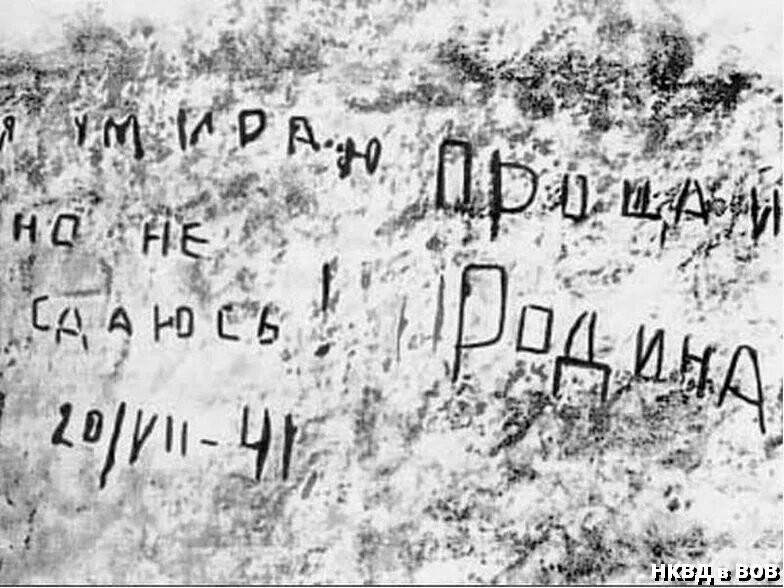 Я УМИРАЮ
НО НЕ
СДАЮСЬ!
20/VII-41
ПРОЩАЙ
РОДИНА
НКВД в ВОВ